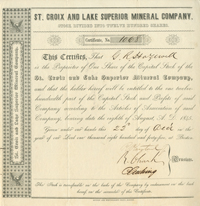 ST. CROIX AND LAKE SUPERIOR MINERAL COMPANY.
STOCK DIVIDED INTO TWELVE HUNDRED SHARES.
Certificate, No. 1008
This Certifies, That
is the Proprietor of One Share of the Capital Stock of the
St. Croix and Lake Superior Mineral Company,
and that the holder hereof will be entitled to the one twelve-
hundredth part of the Capital Stock and Profits of said
Company according to the Articles of Association of said
Company, bearing date the eighth of August, A.D. 1845.
Given under our hands this 23 day of
of our Lord one thousand eight hundred and forty-five
Trustees.
This Stock is transferable on the books of the Company by endorsement on the back
St. Croix and Lake Superior Mineral Company.